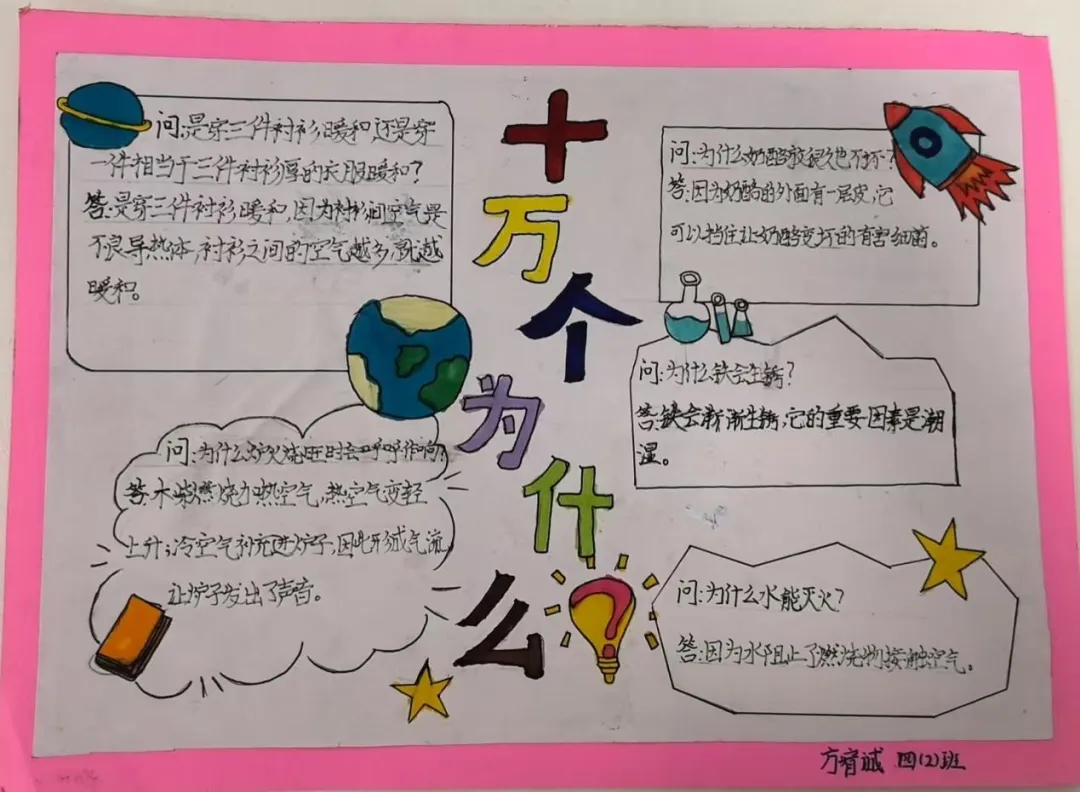 十万个为什么
问:是穿三件衬衫暖和还是穿
一件相当于三件衬衫厚的衣服暖和?
答:是穿三件衬衫暖和,因为衬衫间空气是
不良导热体,衬衫之间的空气越多,就越
暖和。
问:为什么奶酪放很久也不坏?
答:因为奶酪的外面有一层皮,它
可以挡住让奶酪变坏的有害细菌。
问:为什么铁会生锈?
答:铁会渐渐生锈,它的重要因素是潮
湿。
问:为什么炉火烧旺时会呼呼作响?
答:木柴燃烧加热空气,热空气变轻
上升;冷空气补充进炉子,因此形成气流,
让炉子发出了声音。
问:为什么水能灭火?
答:因为水阻止了燃烧物接触空气。
方宥诚 四(2)班